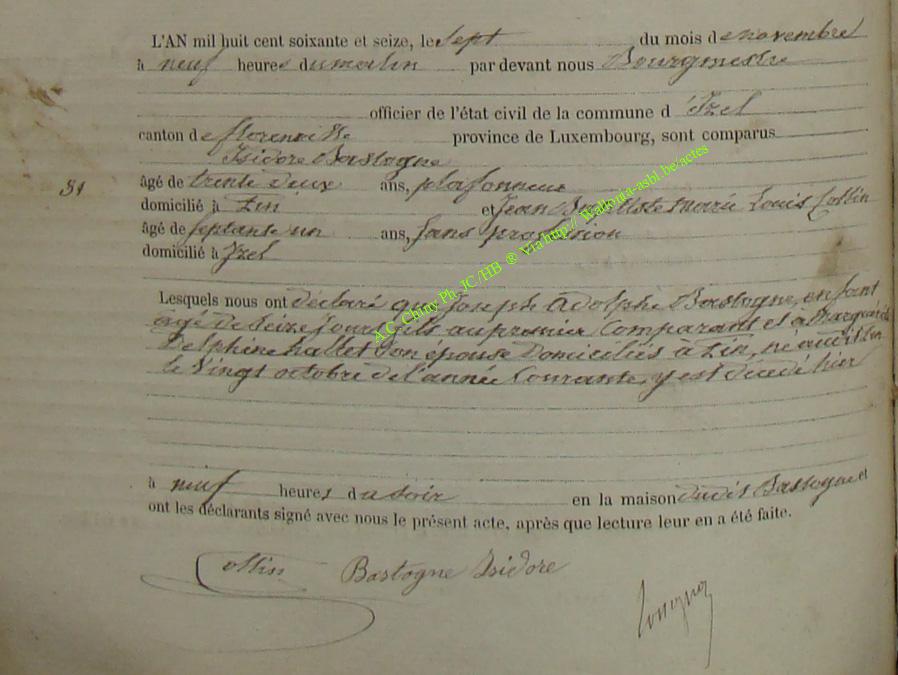 L'AN mil huit cent soixante et seize, le sept du mois de novembre
à neuf heures du matin par devant nous Bourgmestre
officier de l'état civil de la commune d'Izel
canton de florenville province de Luxembourg, sont comparus
Isidore Bastogne
31 âgé de trente deux ans, plafonneur
domicilié à Pin et Jean Baptiste marie Louis Collin
âgé de septante un ans, sans profession
domicilié à Izel
Lesquels nous ont déclaré que Joseph Adolphe Bastogne, enfant
agé de seize jours, fils au premier Comparant et à Marguerite
Delphine hallet son épouse Domiciliés à Pin, né audit Pin
le vingt octobre de l'année Courante, y est décédé hier
à neuf heures du soir en la maison dudit Bastogne et
ont les déclarants signé avec nous le présent acte, après que lecture leur en a été faite.
Collin Bastogne Isidore
A.G. Chiny Ph. JC /HB ® Via http:// Wallonia-asbl.be/actes